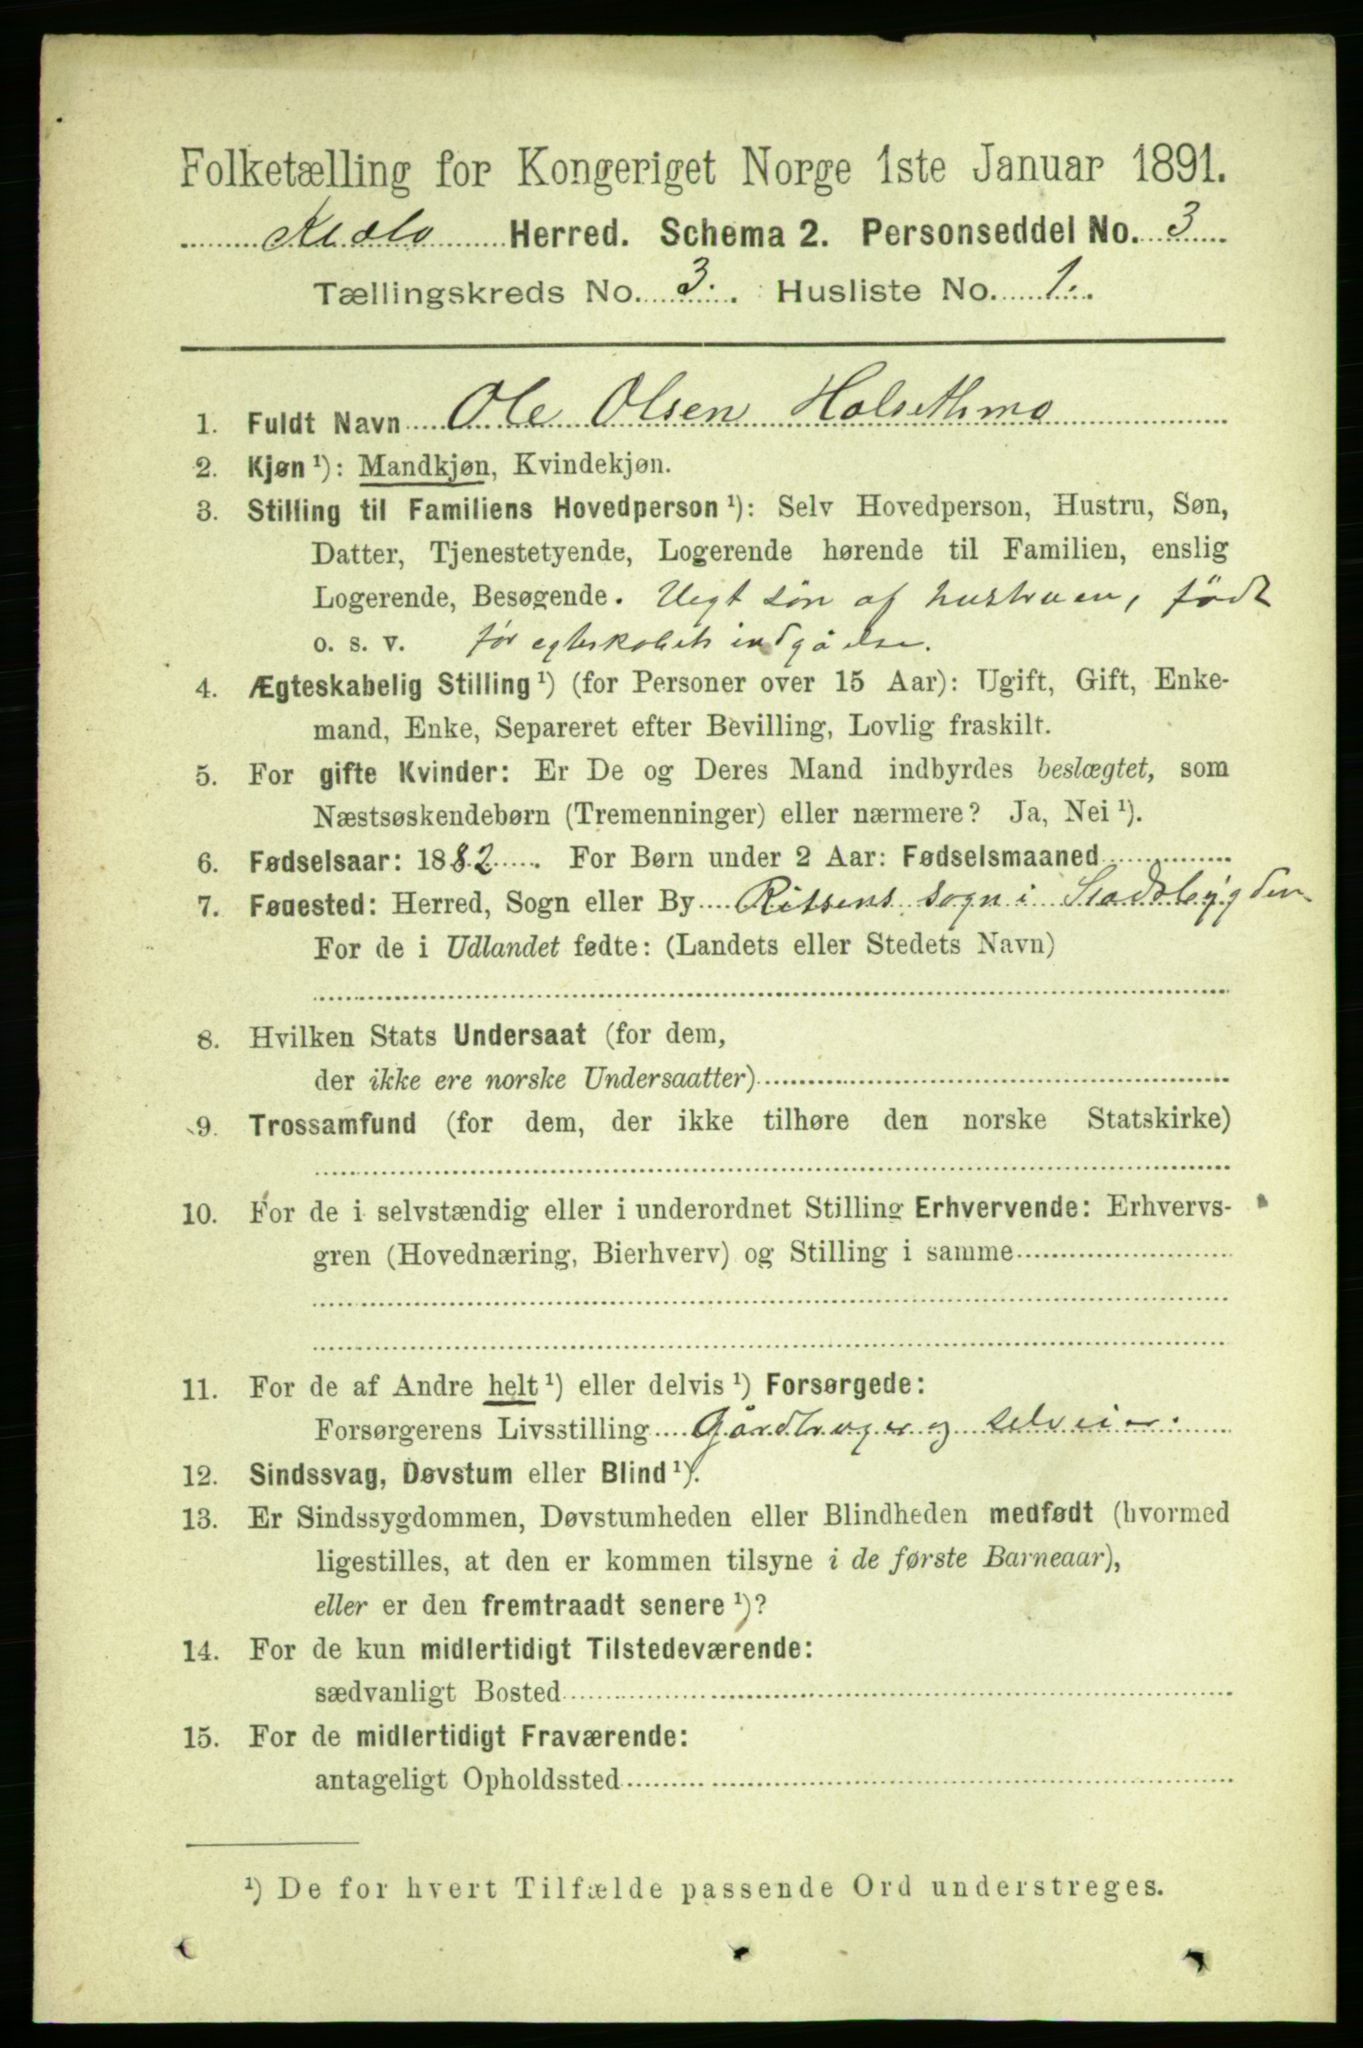 Folketælling for Kongeriget Norge 1ste Januar 1891.
Herred. Schema 2. Personseddel No. 3
Tællingskreds No. 3. Husliste No. 1.
1. Fuldt Navn Ole Olsen Halsethmo
2. Kjøn ¹): Mandkjøn, Kvindekjøn.
3. Stilling til Familiens Hovedperson ¹): Selv Hovedperson, Hustru, Søn,
Datter, Tjenestetyende, Logerende hørende til Familien, enslig
Logerende, Besøgende. Uegt søn af hustruen, født
o. s. v. før egteskabets indgåelse.
4. Ægteskabelig Stilling ¹) (for Personer over 15 Aar): Ugift, Gift, Enke-
mand, Enke, Separeret efter Bevilling, Lovlig fraskilt.
5. For gifte Kvinder: Er De og Deres Mand indbyrdes beslægtet, som
Næstsøskendebørn (Tremenninger) eller nærmere? Ja, Nei ¹).
6. Fødselsaar: 1882 For Børn under 2 Aar: Fødselsmaaned
7. Fødested: Herred, Sogn eller By Rissens sogn i Stadsbygden
For de i Udlandet fødte: (Landets eller Stedets Navn)
8. Hvilken Stats Undersaat (for dem,
der ikke ere norske Undersaatter)
9. Trossamfund (for dem, der ikke tilhøre den norske Statskirke)
10. For de i selvstændig eller i underordnet Stilling Erhvervende: Erhvervs-
gren (Hovednæring, Bierhverv) og Stilling i samme
11. For de af Andre helt ¹) eller delvis ¹) Forsørgede:
Forsørgerens Livsstilling Gårdbruger og selveier.
12. Sindssvag, Døvstum eller Blind ¹).
13. Er Sindssygdommen, Døvstumheden eller Blindheden medfødt (hvormed
ligestilles, at den er kommen tilsyne i de første Barneaar),
eller er den fremtraadt senere ¹)?
14. For de kun midlertidigt Tilstedeværende:
sædvanligt Bosted
15. For de midlertidigt Fraværende:
antageligt Opholdssted
¹) De for hvert Tilfælde passende Ord understreges.